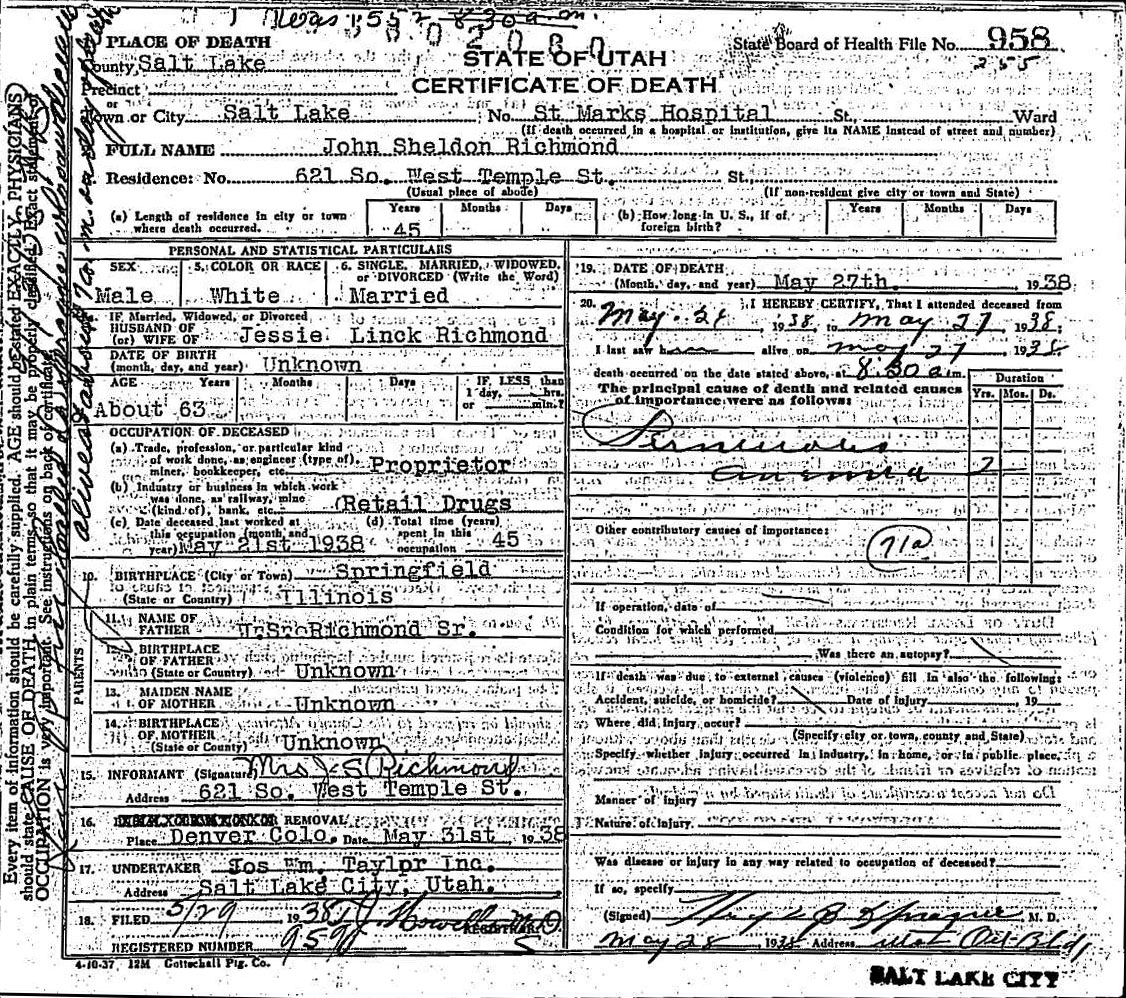 8:30 a.m.
PLACE OF DEATH
County Salt Lake
STATE OF UTAH
CERTIFICATE OF DEATH
State Board of Health File No. 958
255
Precinct
or
Town or City Salt Lake No. St Marks Hospital St., Ward
(If death occurred in a hospital or institution, give its NAME instead of street and number)
FULL NAME John Sheldon Richmond
Residence: No. 621 So. West Temple St. St.
(Usual place of abode) (If non-resident give city or town and State)
(a) Length of residence in city or town where death occurred. Years 45 Months Days
(b) How long in U. S., if of foreign birth? Years Months Days
PERSONAL AND STATISTICAL PARTICULARS
SEX Male
5. COLOR OR RACE White
6. SINGLE, MARRIED, WIDOWED, or DIVORCED (Write the Word) Married
IF. Married, Widowed, or Divorced
HUSBAND OF
(or) WIFE OF Jessie Linck Richmond
DATE OF BIRTH
(month, day, and year) Unknown
AGE Years Months Days IF. LESS than
1 day, hrs.
or min.?
About 63
OCCUPATION OF DECEASED
(a) Trade, profession, or particular kind
of work done, as engineer (type of)
miner, bookkeeper, etc. Proprietor
(b) Industry or business in which work
was done, as railway, mine
(kind of), bank, etc. Retail Drugs
(c) Date deceased last worked at
this occupation (month and
year) May 21st 1938
(d) Total time (years)
spent in this
occupation 45
10. BIRTHPLACE (City or Town) Springfield
(State or Country) Illinois
PARENTS
11. NAME OF
FATHER Richmond Sr.
12. BIRTHPLACE
OF FATHER
(State or Country) Unknown
13. MAIDEN NAME
OF MOTHER Unknown
14. BIRTHPLACE
OF MOTHER
(State or Country) Unknown
15. INFORMANT (Signature) Mrs J S Richmond
Address 621 So. West Temple St.
16. REMOVAL
Place Denver Colo. Date May 31st 1938
17. UNDERTAKER Jos Wm. Taylpr Inc.
Address Salt Lake City, Utah.
18. FILED 5/29 1938 Howells M.D.
REGISTRAR
REGISTERED NUMBER 959
19. DATE OF DEATH
(Month, day, and year) May 27th. 1938
20. I HEREBY CERTIFY, That I attended deceased from
May 21 1938, to May 27 1938;
I last saw him alive on May 27 1938
death occurred on the date stated above, at 8:30 a.m.
The principal cause of death and related causes
of importance were as follows:
Duration
Yrs. Mos. Ds.
Pernicious
anemia 2
Other contributory causes of importance:
71a
If operation, date of
Condition for which performed
Was there an autopsy?
If death was due to external causes (violence) fill in also the following:
Accident, suicide, or homicide? Date of injury 19
Where did injury occur?
(Specify city or town, county and State)
Specify whether injury occurred in industry, in home, or in public place.
Manner of injury
Nature of injury
Was disease or injury in any way related to occupation of deceased?
If so, specify
(Signed) B Sprague M. D.
May 28 1938 Address Utah Oil Bldg
4-10-37 12M Gottschall Ptg. Co.
SALT LAKE CITY
Every item of information should be carefully supplied. AGE should be stated EXACTLY. PHYSICIANS
should state CAUSE OF DEATH in plain terms, so that it may be properly classified. Exact statement of
OCCUPATION is very important. See instructions on back of certificate.